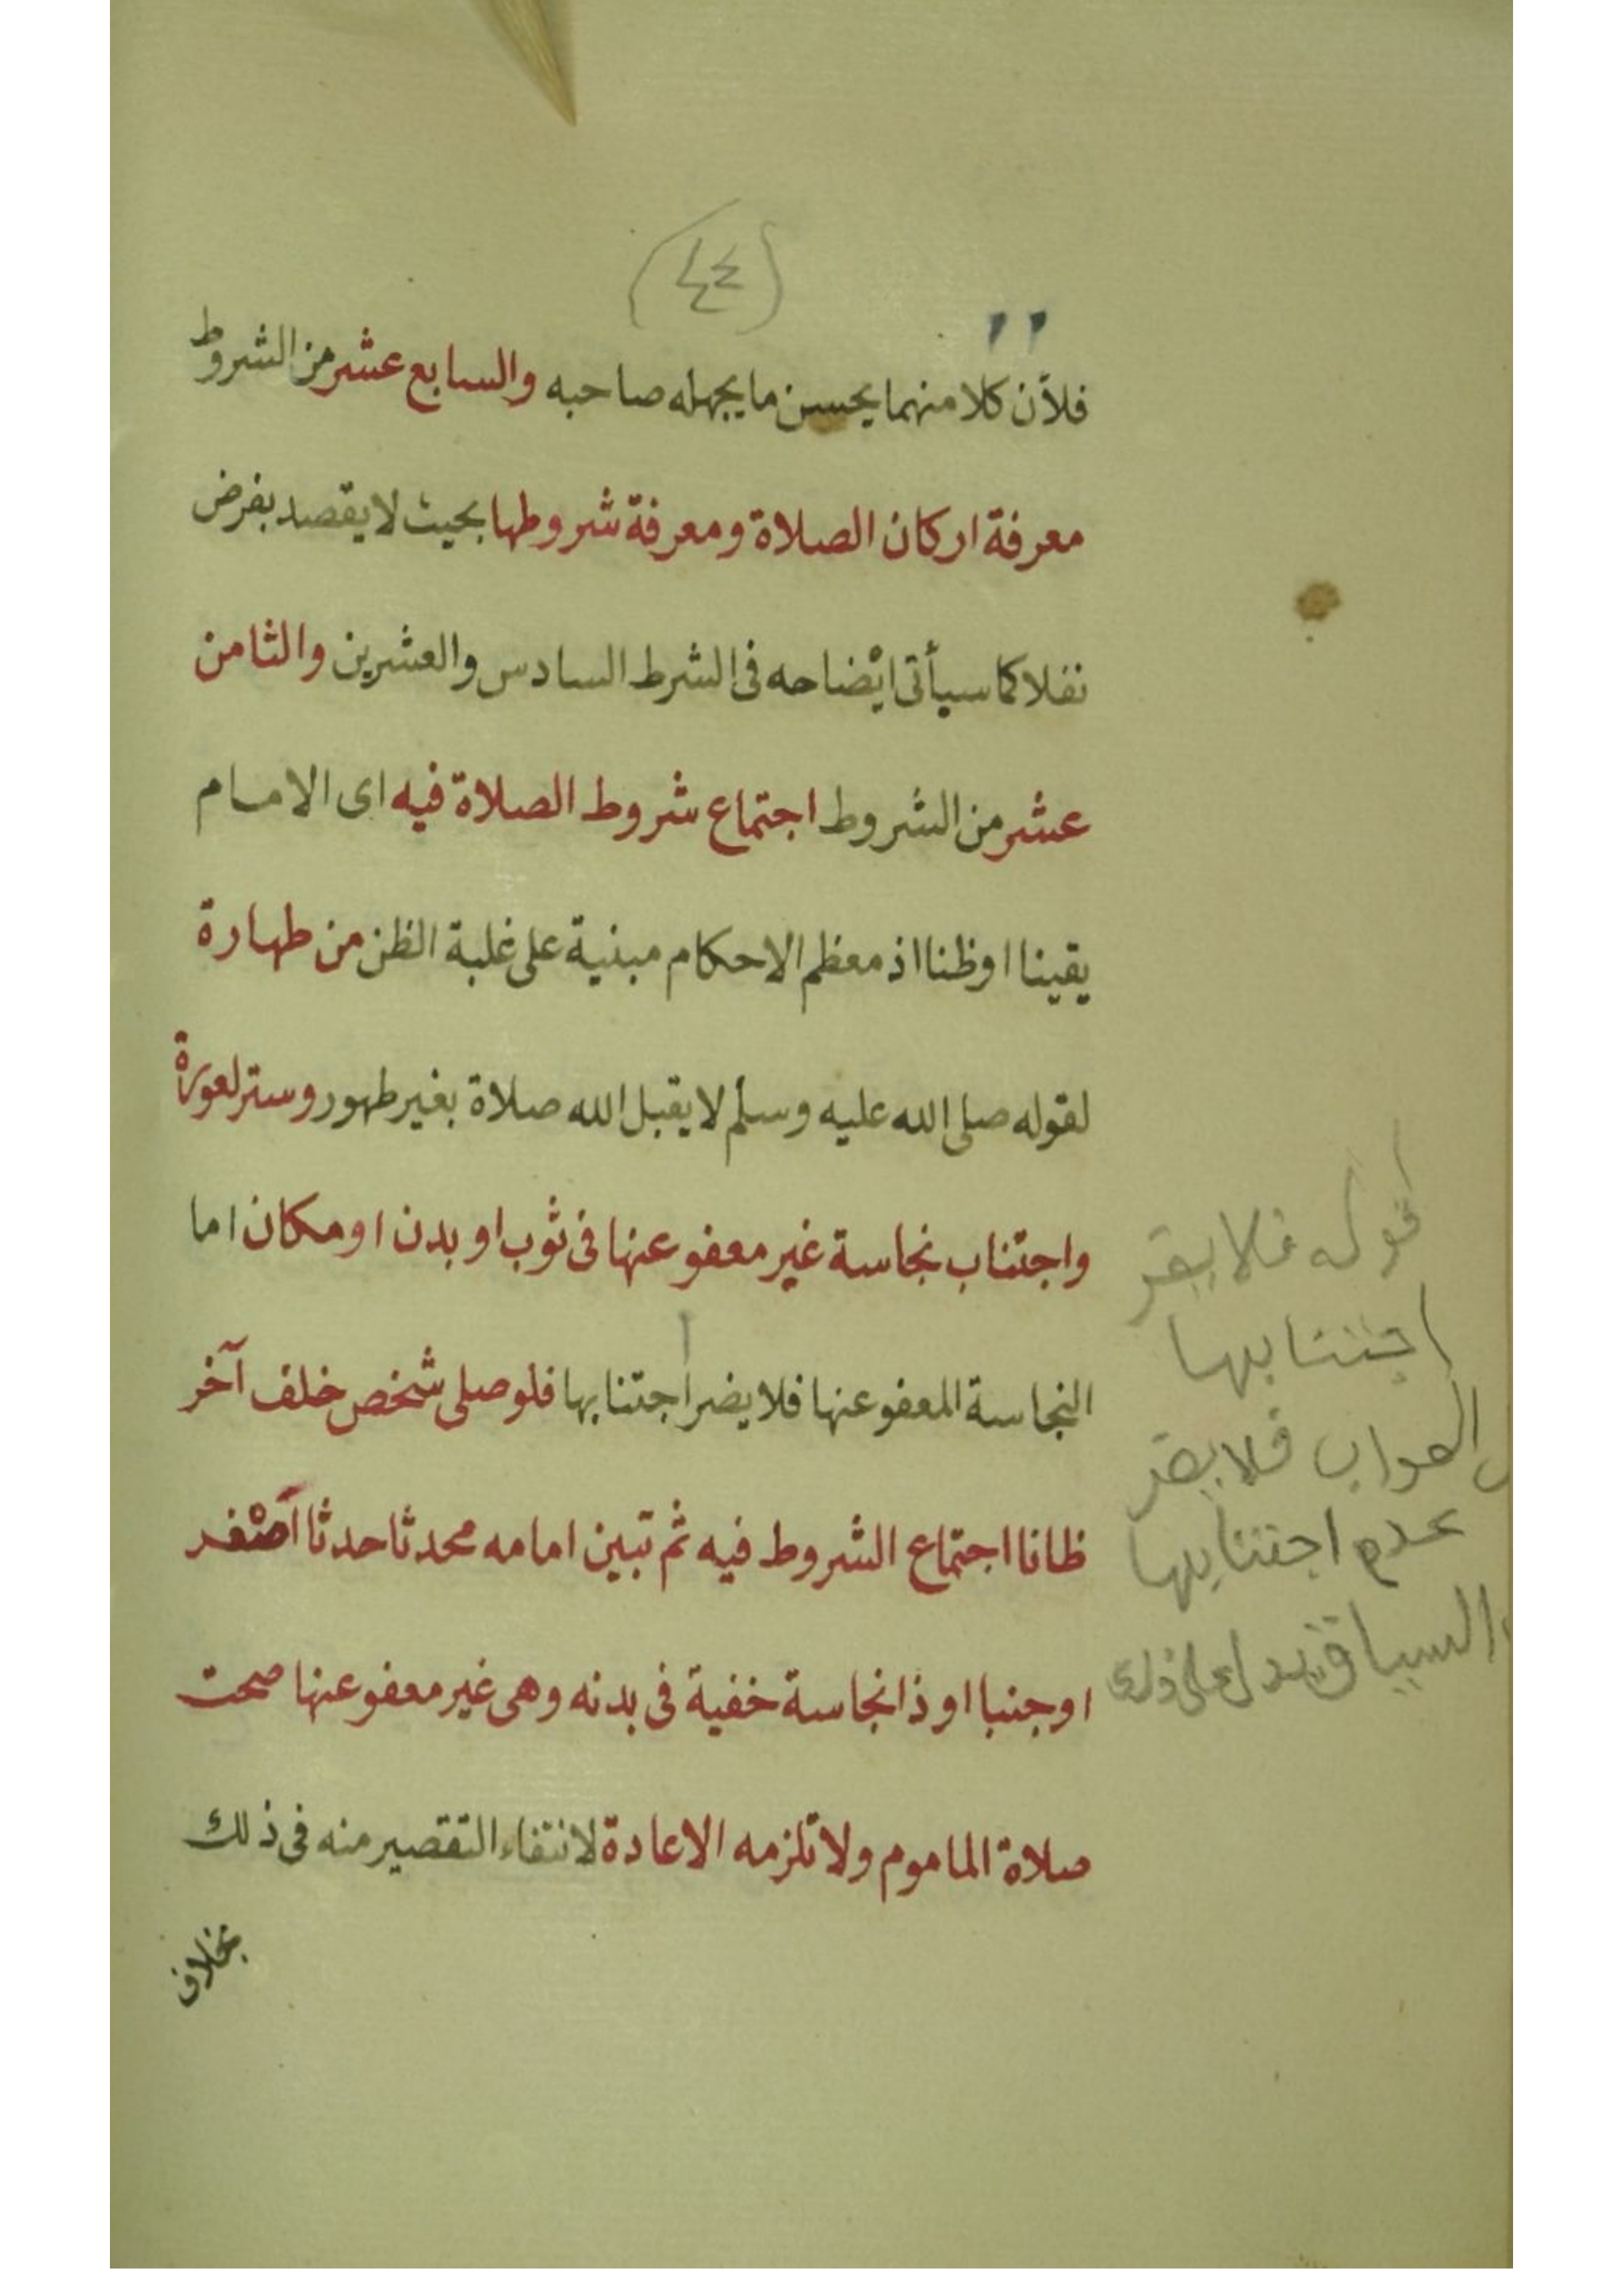 (٤٤)
١١
فلأن كلا منهما يحسن ما يجهله صاحبه والسابع عشر من الشروط
معرفة اركان الصلاة ومعرفة شروطها بحيث لا يقصد بفرض
نفلا كما سيأتى ايضاحه فى الشرط السادس والعشرين والثامن
عشر من الشروط اجتماع شروط الصلاة فيه اى الامام
يقينا او ظنا اذ معظم الاحكام مبنية على غلبة الظن من طهارة
لقوله صلى الله عليه وسلم لا يقبل الله صلاة بغير طهور وستر لعورة
واجتناب نجاسة غير معفو عنها فى ثوب او بدن او مكان اما
النجاسة المعفو عنها فلا يضر اجتنابها فلو صلى شخص خلف آخر
ظانا اجتماع الشروط فيه ثم تبين امامه محدثا حدثا اصغر
او جنبا او ذا نجاسة خفية فى بدنه وهى غير معفو عنها صحت
صلاة الماموم ولا تلزمه الاعادة لانتفاء التقصير منه فى ذلك
بخلاف
قوله فلا يضر
اجتنابها
الصواب فلا يضر
عدم اجتنابها
السياق يدل على ذلك